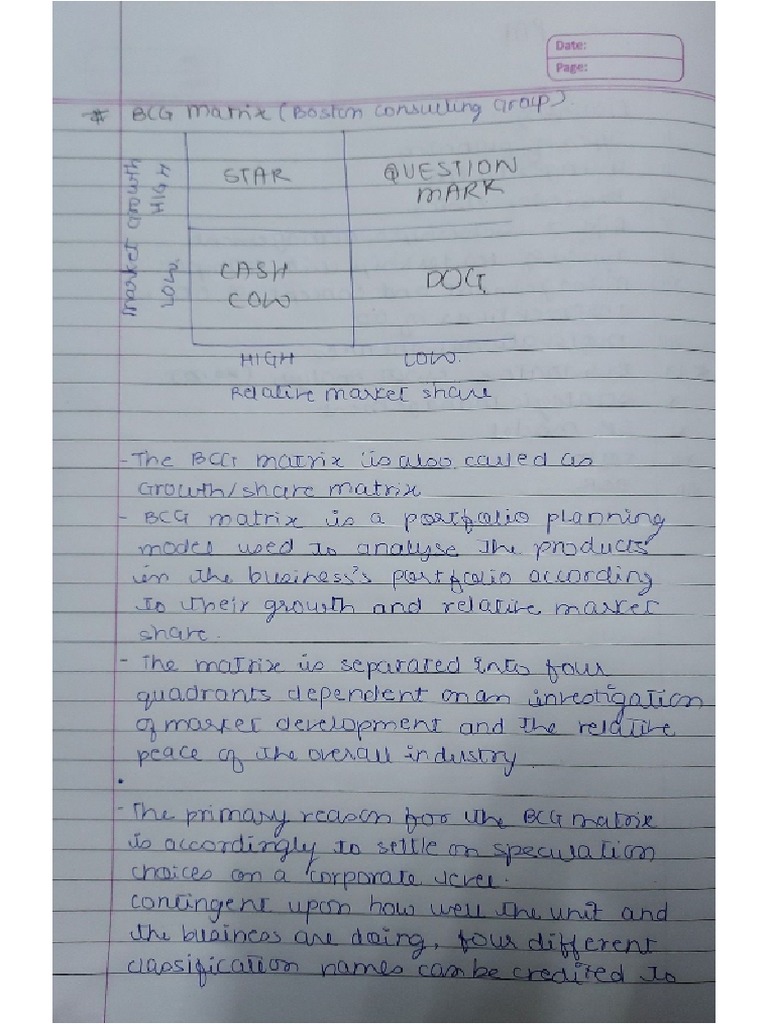 Date:
Page:
* BCG Matrix (Boston Consulting Group)
Market Growth
HIGH
LOW
STAR
QUESTION
MARK
CASH
COW
DOG
HIGH LOW.
Relative market share
- The BCG matrix is also called as
Growth/share matrix
- BCG matrix is a portfolio planning
model used to analyse the products
in the business's portfolio according
to their growth and relative market
share.
- The matrix is separated into four
quadrants dependent on an investigation
of market development and the relative
peace of the overall industry.
- The primary reason for the BCG matrix
is accordingly to settle on speculation
choices on a corporate level.
contingent upon how well the unit and
the business are doing, four different
classification names can be credited to